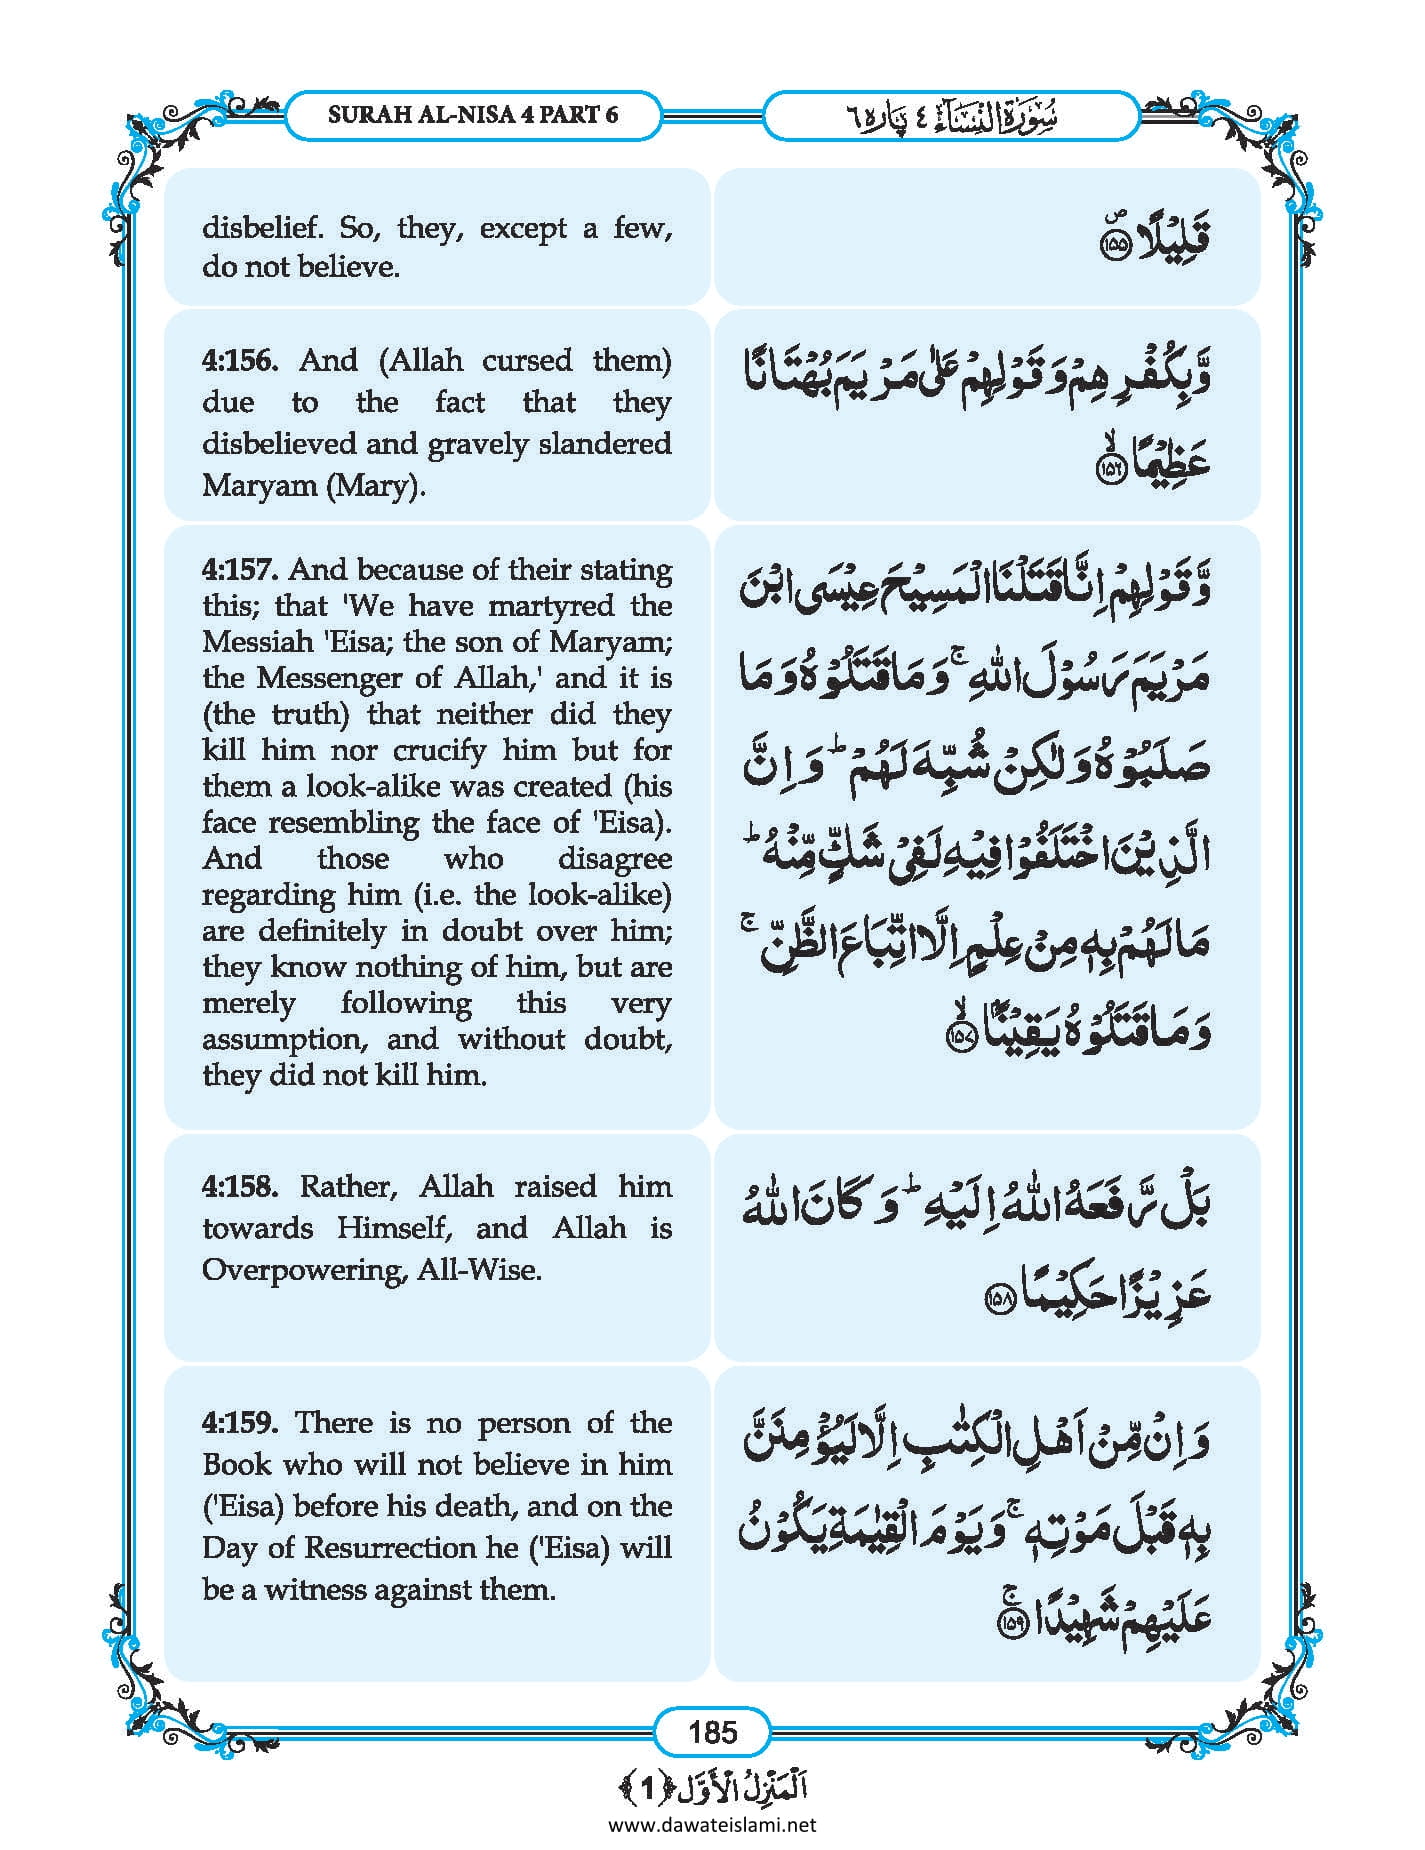 SURAH AL-NISA 4 PART 6
سُوْرَةُ النِّسَآء ٤ پاره ٦
disbelief. So, they, except a few,
do not believe.
قَلِیْلًا ۪ۙ﴿۱۵۵﴾
4:156. And (Allah cursed them)
due to the fact that they
disbelieved and gravely slandered
Maryam (Mary).
وَّبِكُفْرِهِمْ وَ قَوْلِهِمْ عَلٰى مَرْیَمَ بُهْتَانًا
عَظِیْمًا ۙ﴿۱۵۶﴾
4:157. And because of their stating
this; that 'We have martyred the
Messiah 'Eisa; the son of Maryam;
the Messenger of Allah,' and it is
(the truth) that neither did they
kill him nor crucify him but for
them a look-alike was created (his
face resembling the face of 'Eisa).
And those who disagree
regarding him (i.e. the look-alike)
are definitely in doubt over him;
they know nothing of him, but are
merely following this very
assumption, and without doubt,
they did not kill him.
وَّ قَوْلِهِمْ اِنَّا قَتَلْنَا الْمَسِیْحَ عِیْسَى ابْنَ
مَرْیَمَ رَسُوْلَ اللهِ ۚ وَمَا قَتَلُوْهُ وَ مَا
صَلَبُوْهُ وَ لٰكِنْ شُبِّهَ لَهُمْ ؕ وَ اِنَّ
الَّذِیْنَ اخْتَلَفُوْا فِیْهِ لَفِیْ شَكٍّ مِّنْهُ ؕ
مَا لَهُمْ بِهٖ مِنْ عِلْمٍ اِلَّا اتِّبَاعَ الظَّنِّ ۚ
وَ مَا قَتَلُوْهُ یَقِیْنًۢا ۙ﴿۱۵۷﴾
4:158. Rather, Allah raised him
towards Himself, and Allah is
Overpowering, All-Wise.
بَلْ رَّفَعَهُ اللهُ اِلَیْهِ ؕ وَ كَانَ اللهُ
عَزِیْزًا حَكِیْمًا ﴿۱۵۸﴾
4:159. There is no person of the
Book who will not believe in him
('Eisa) before his death, and on the
Day of Resurrection he ('Eisa) will
be a witness against them.
وَ اِنْ مِّنْ اَهْلِ الْكِتٰبِ اِلَّا لَیُؤْمِنَنَّ
بِهٖ قَبْلَ مَوْتِهٖ ۚ وَ یَوْمَ الْقِیٰمَةِ یَكُوْنُ
عَلَیْهِمْ شَهِیْدًا ۚ﴿۱۵۹﴾
185
اَلْمَنْزِلُ الْاَوَّل ﴿1﴾
www.dawateislami.net